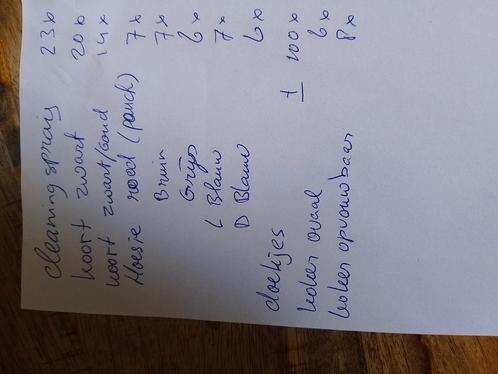 Cleaning sprais 23x
koort zwart 20x
koort zwart/goud 14x
Hoesje rood (pouch) 7x
Bruin 7x
Grijs 6x
L Blauw 7x
D Blauw 6x
doekjes ± 100x
koker ovaal 6x
koker opvouwbaar 8x